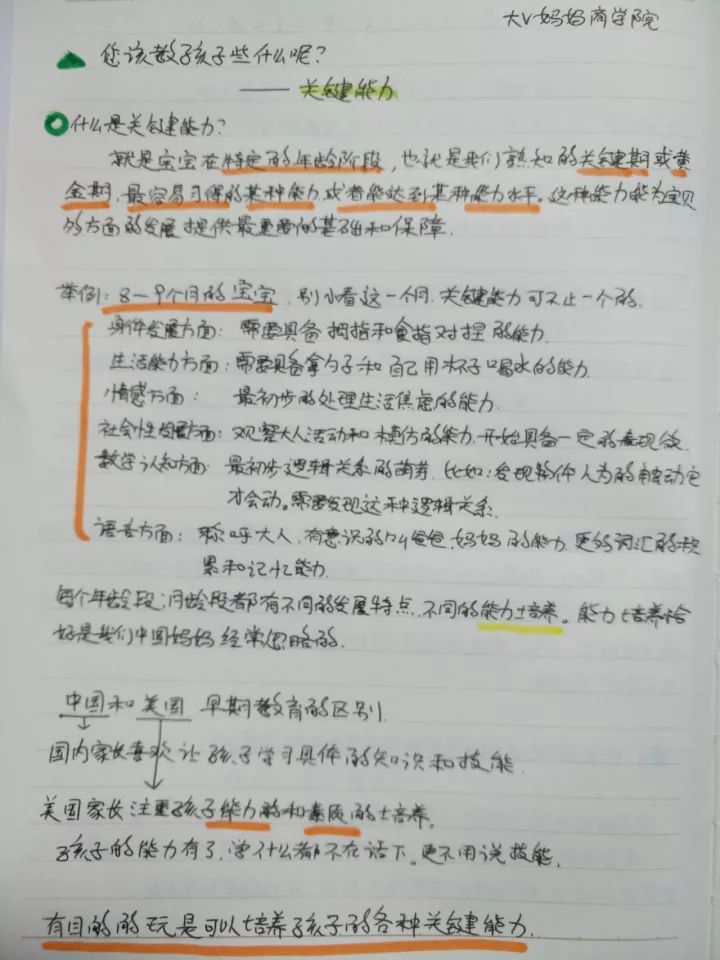 大V妈妈商学院
您该教孩子些什么呢？
—— 关键能力
什么是关键能力？
就是宝宝在特定的年龄阶段，也就是我们熟知的关键期或黄
金期，最容易习得的某种能力或者能达到某种能力水平。这种能力能为宝贝
的方面的发展提供最重要的基础和保障.
举例：8-9个月的宝宝，别小看这一个月.关键能力可不止一个的.
身体发展方面：需要具备 拇指和食指对捏的能力.
生活能力方面：需要具备拿勺子和自己用杯子喝水的能力.
情感方面： 最初步的处理生活焦虑的能力.
社会性发展方面：观察大人活动和模仿的能力.开始具备一定的表现欲.
数学认知方面：最初步逻辑关系的萌芽.比如：发现物件人为的触动它
才会动。需要发现这种逻辑关系.
语言方面：称呼大人，有意识的叫爸爸.妈妈的能力.更多词汇的积
累和记忆能力.
每个年龄段；月龄段都有不同的发展特点.不同的能力培养。能力培养恰
好是我们中国妈妈经常忽略的.
中国和美国 早期教育的区别.
国内家长喜欢让孩子学习具体的知识和技能.
美国家长注重孩子能力的和素质的培养.
孩子的能力有了，学什么都不在话下。更不用说技能.
有目的的玩是可以培养孩子的各种关键能力.